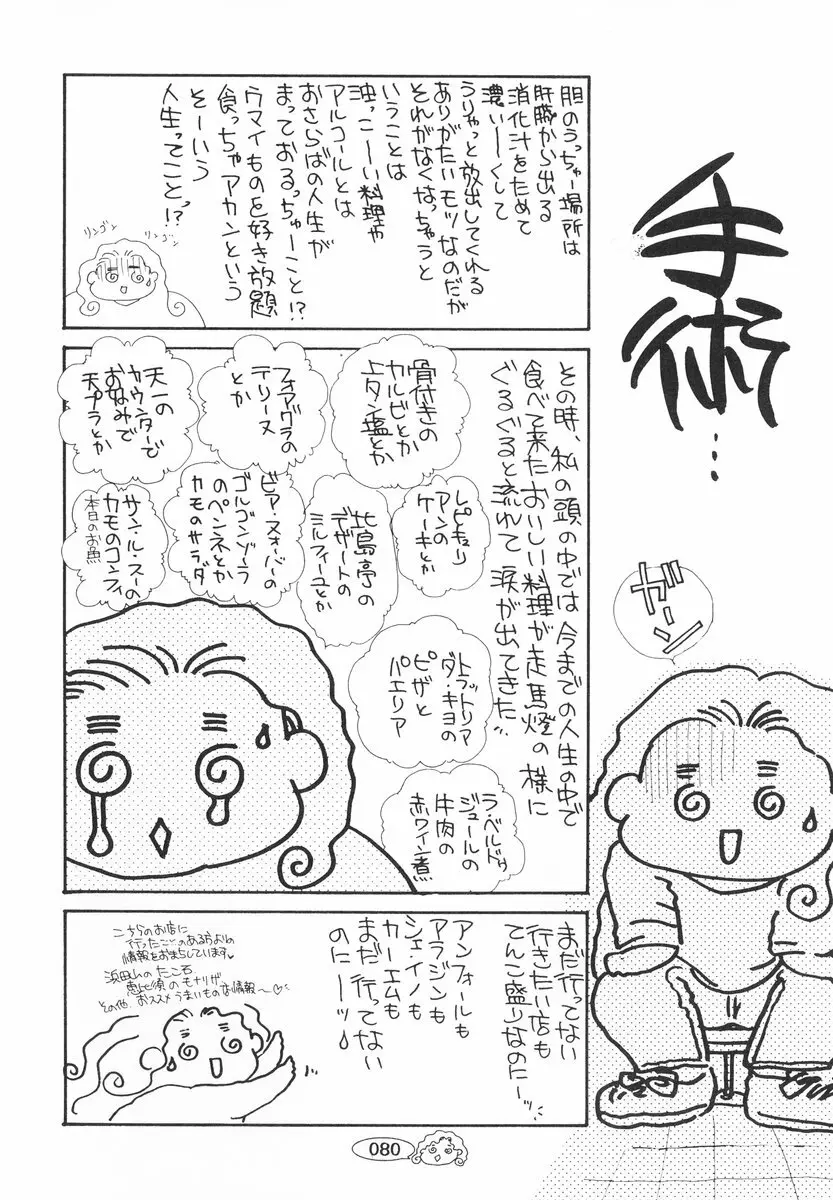 手術…
ガーン
胆のうっちゅー場所は
肝臓から出る
消化汁をためて
濃い〜くして
うりゃっと放出してくれる
ありがたいモツなのだが
それがなくなっちゃうと
いうことは
油っこーい料理や
アルコールとは
おさらばの人生が
まっておるっちゅーこと!?
ウマイものを好き放題
食っちゃアカンという
そーいう
人生ってこと!?
リンゴン
リンゴン
その時、私の頭の中では今までの人生の中で
食べて来たおいしい料理が走馬燈の様に
ぐるぐると流れて涙が出てきた…
骨付きの
カルビとか
上タン塩とか
フォアグラの
テリーヌ
とか
天一の
カウンターで
お好みで
天プラとか
レピキュリ
アンの
ケーキとか
比島亭の
デザートの
ミルフィーユとか
ビア・ヌォーバーの
ゴルゴンゾーラ
のペンネとか
カモのサラダ
サン・ル・スーの
カモのコンフィ
本日のお魚
トラットリア
ダ・キヨの
ピザと
パエリア
ラ・ベルドゥ
ジュールの
牛肉の
赤ワイン煮
まだ行ってない
行きたい店も
てんこ盛りなのにー
アンフォールも
アラジンも
シェ・イノも
カーエムも
まだ行ってない
のにーッ
こちらのお店に
行ったことのある方よりの
情報をおまちしています♥
浜田山のたこ石
恵比須のモナリザ
その他、おススメうまいものな情報〜♡
080